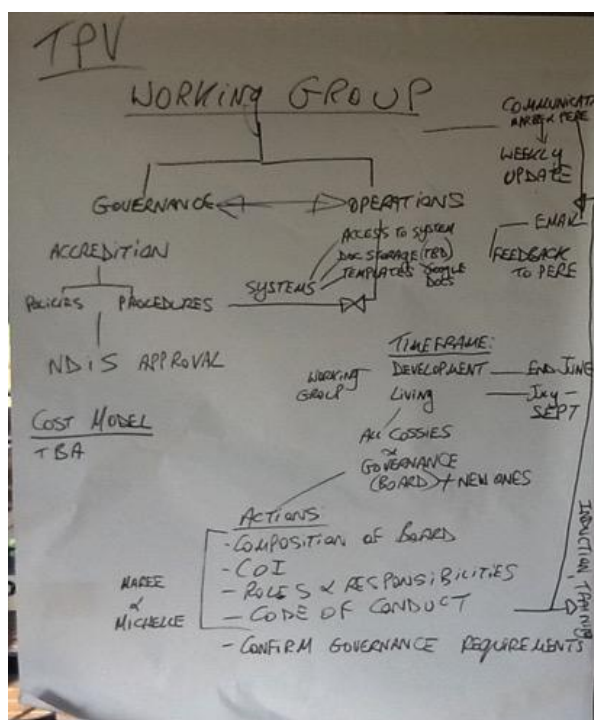 TPV
WORKING GROUP
COMMUNICAT
MAREE & PERE
WEEKLY
UPDATE
GOVERNANCE
OPERATIONS
EMAIL
FEEDBACK
TO PERE
ACCREDITION
POLICIES
PROCEDURES
NDiS APPROVAL
SYSTEMS
ACCESS TO SYSTEM
DOC STORAGE (TBD)
TEMPLATES GOOGLE
DOCS
TIMEFRAME:
WORKING
GROUP
DEVELOPMENT — END JUNE
LIVING — 
SEPT
COST MODEL
TBA
ALL COSSIES
&
GOVERNANCE
(BOARD) + NEW ONES
ACTIONS:
- COMPOSITION OF BOARD
- COI
- ROLES & RESPONSIBILITIES
- CODE OF CONDUCT
- CONFIRM GOVERNANCE REQUIREMENTS
MAREE
&
MICHELLE
INDUCTION, TRAINING